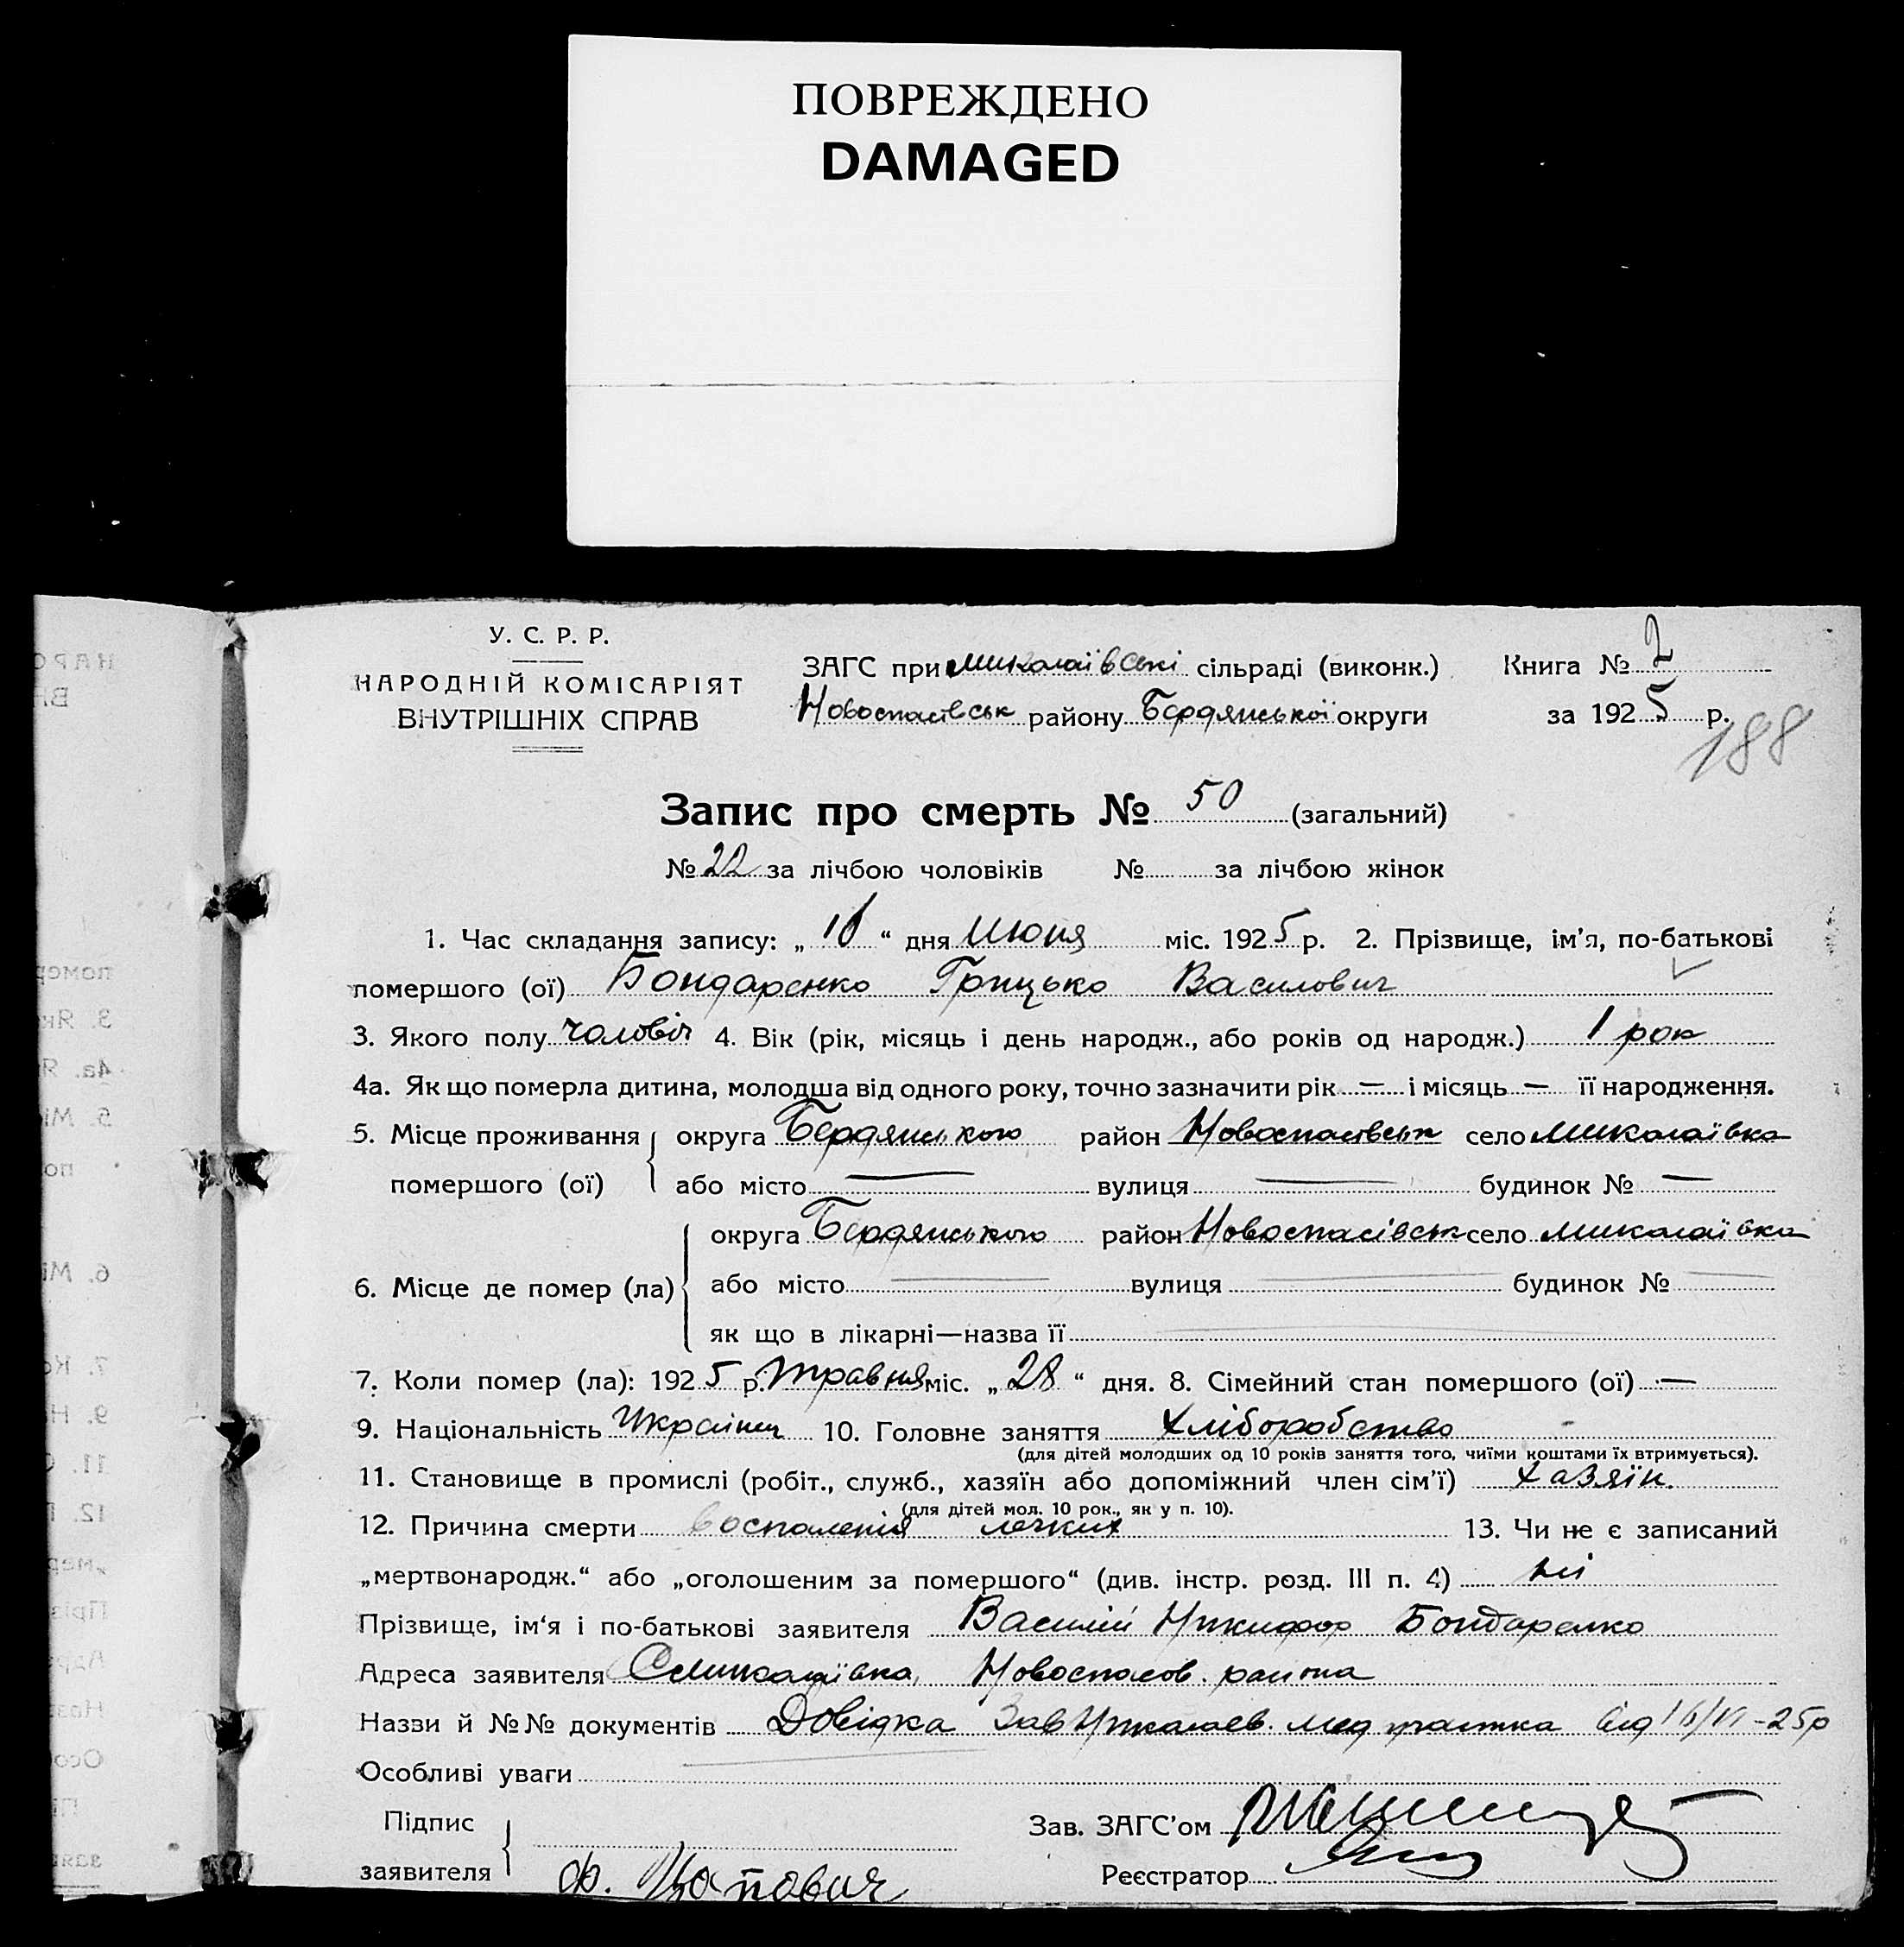 ПОВРЕЖДЕНО
DAMAGED
У. С. Р. Р.
НАРОДНІЙ КОМІСАРІЯТ
ВНУТРІШНІХ СПРАВ
ЗАГС при Миколаївські сільраді (виконк.)
Новоспасівськ району Бердянської округи
Книга № 2
за 1925 р.
188
Запис про смерть № 50 (загальний)
№ 22 за лічбою чоловіків № за лічбою жінок
1. Час складання запису: „16“ дня Июня міс. 1925 р. 2. Прізвище, ім’я, по-батькові
помершого (ої) Бондаренко Грицько Василович
3. Якого полу чоловіч 4. Вік (рік, місяць і день народж., або років од народж.) 1 рок
4а. Як що померла дитина, молодша від одного року, точно зазначити рік — і місяць — її народження.
5. Місце проживання округа Бердянського район Новоспасівськ село Миколаївка
помершого (ої) або місто — вулиця — будинок № —
округа Бердянського район Новоспасівськ село Миколаївка
6. Місце де помер (ла) або місто — вулиця — будинок № —
як що в лікарні—назва її
7. Коли помер (ла): 1925 р. Травня міс. „28“ дня. 8. Сімейний стан помершого (ої) —
9. Національність 10. Головне заняття Хліборобство
(для дітей молодших од 10 років заняття того, чиїми коштами їх втримується).
11. Становище в промислі (робіт., служб., хазяїн або допоміжний член сім’ї) Хазяїн.
(для дітей мол. 10 рок., як у п. 10).
12. Причина смерти воспаления легких 13. Чи не є записаний
„мертвонародж.“ або „оголошеним за помершого“ (див. інстр. розд. III п. 4) ні
Прізвище, ім‘я і по-батькові заявителя Василий Никифор Бондаренко
Адреса заявителя С Миколаївка, Новоспасов. района
Назви й №№ документів Довідка Зав Николаев. Мед участка від 16/VI-25р
Особливі уваги
Підпис
заявителя
Зав. ЗАГС’ом
Реєстратор